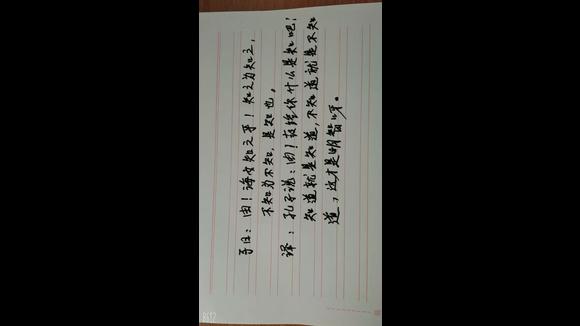 子曰：由！诲女知之乎！知之为知之，
不知为不知，是知也。
译：孔子说：由！教给你什么是知吧！
知道就是知道，不知道就是不知
道，这才是明智呀。